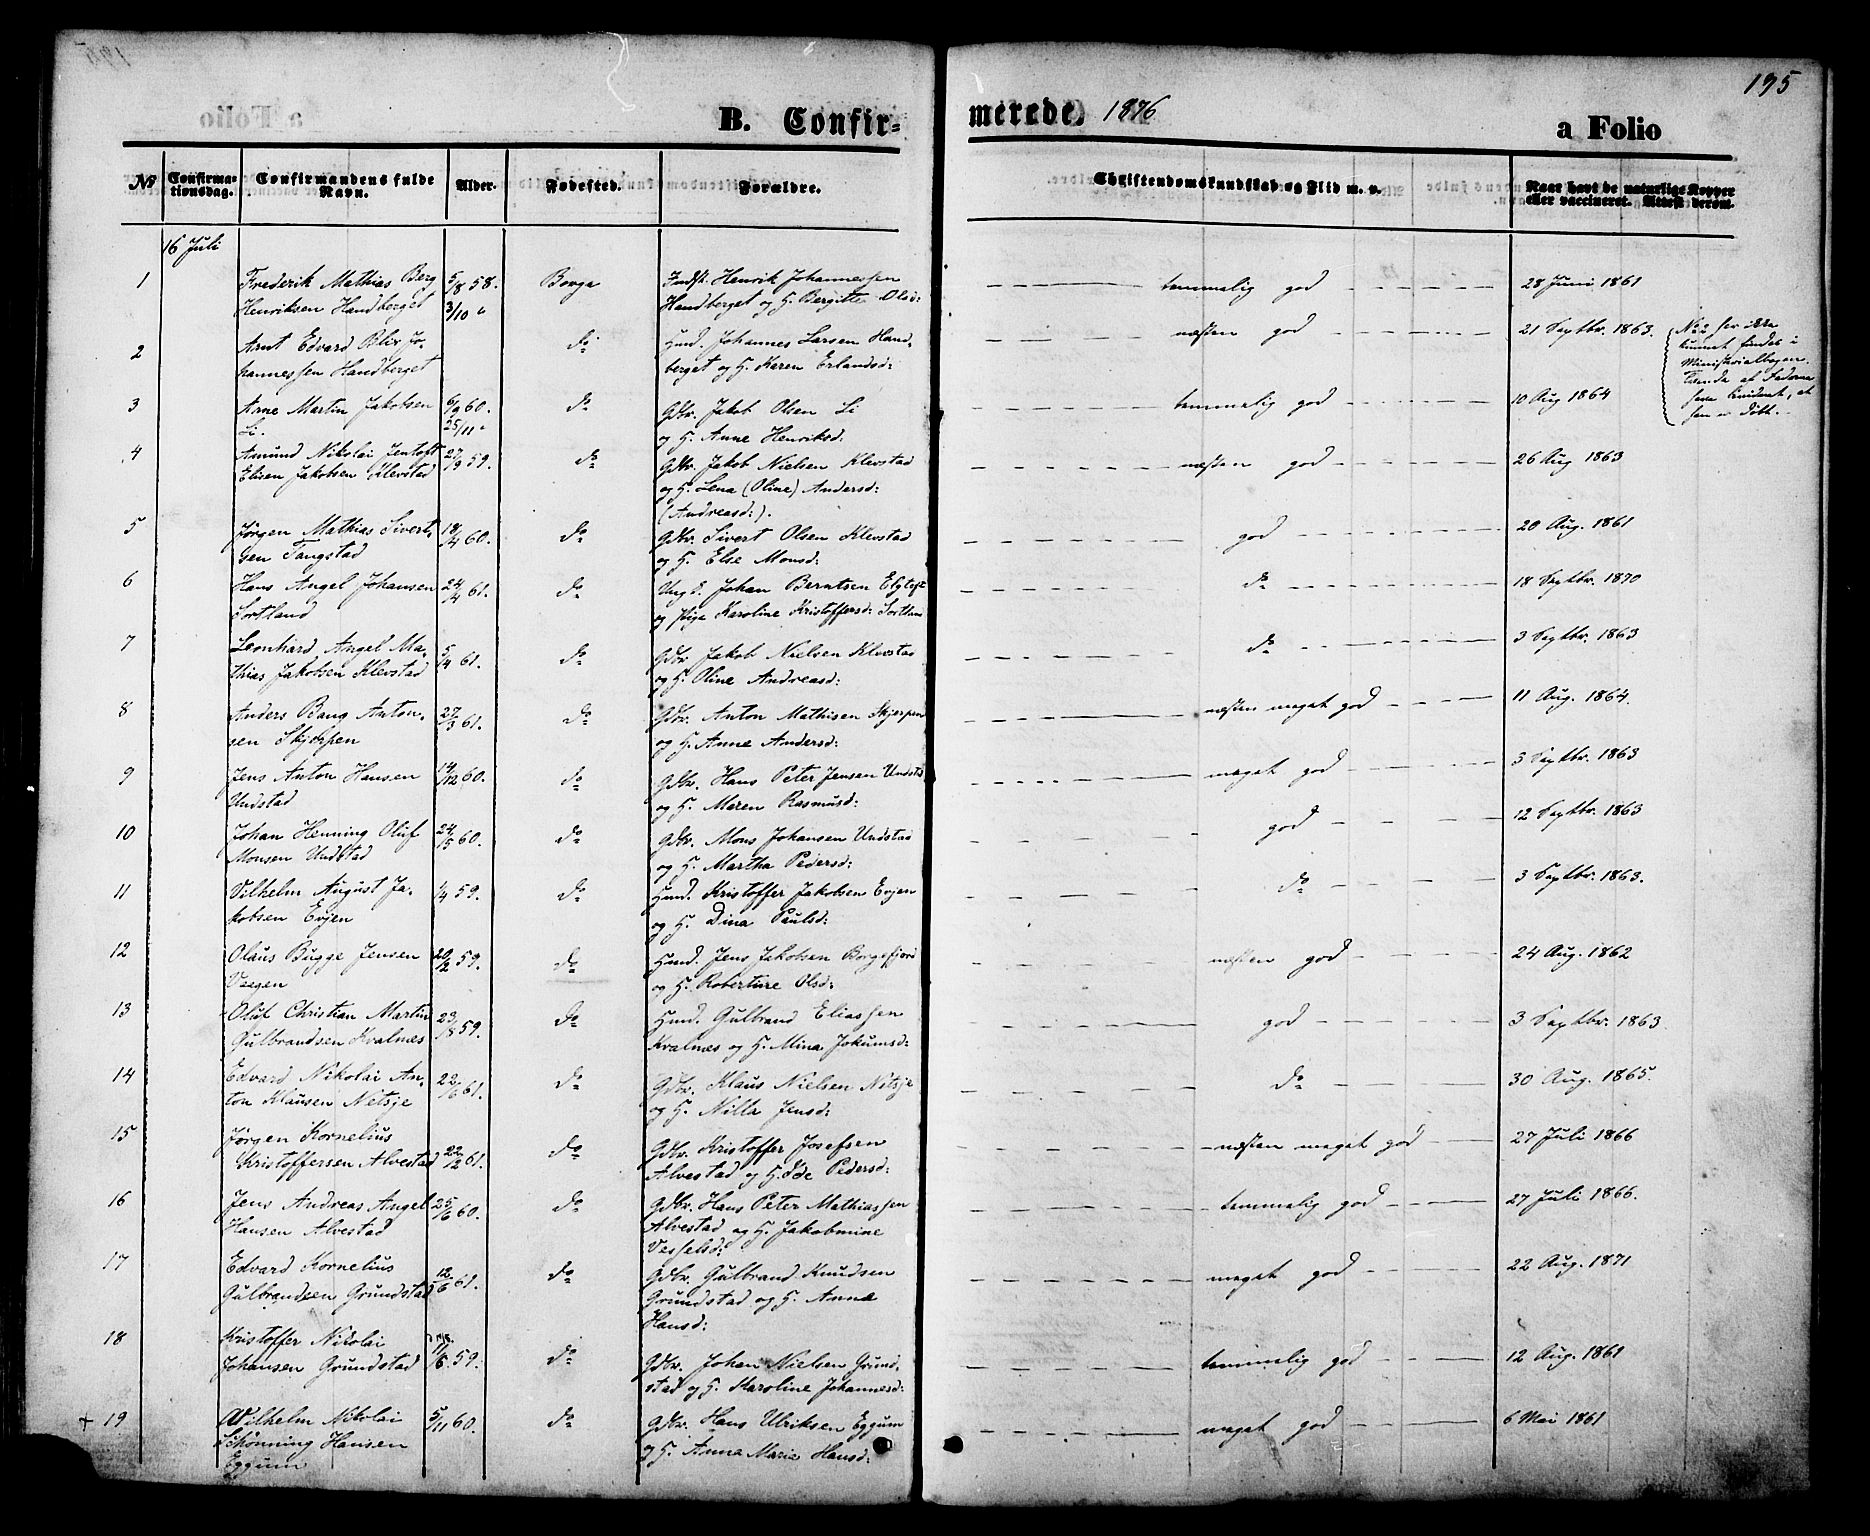 195
B. Confir-
merede, 1876
a Folio
№
Confirma-
tionsdag.
Confirmandens fulde
Navn.
Alder.
Fødested.
Forældre.
Christendomskundskab og Flid m. v.
Naar havt de naturlige Kopper
eller vaccineret. Attest derom.
16 Juli
1 Frederik Mathias Berg 5/8 58. Borge Indst. Henrik Johannessen temmelig god 28 Juni 1861
Henriksen Handberget 3/10 " Handberget og H. Bergitte Olsd:
2 Arnt Edvard Blix Jo- do Huusm. Johannes Larsen Hand- næsten god 21 Septbr. 1863.
hannessen Handberget berget og H. Karen Erlandsd:
No 2 her ikke
kunnet findes i
Ministerialbogen.
3 Arne Martin Jakobsen 6/9 60. do Gdbr. Jakob Olsen Li temmelig god 10 Aug 1864
Li. 25/11 " og H. Anne Henriksd:
4 Amund Nikolai Jentoft 27/9 59. do Gdbr. Jakob Nielsen Klevstad næsten god 26 Aug 1863
Elisen Jakobsen Klevstad og H. Lena (Oline) Andersd:
(Andreasd:).
5 Jørgen Mathias Sivert- 18/4 60. do Gdbr. Sivert Olsen Klevstad god 20 Aug. 1861
sen Tangstad og H. Else Monsd:
6 Hans Angel Johansen 24/4 61. do Ungk. Johan Berntsen do 18 Septbr. 1870
Sortland og Pige Karoline Kristoffersd: Sortland
7 Leonhard Angel Ma- 5/4 61. do Gdbr. Jakob Nielsen Klevstad do 3 Septbr. 1863
thias Jakobsen Klevstad og H. Oline Andreasd:
8 Anders Bang Anton- 27/3 61. do Gdbr. Anton Mathisen Skjerpen næsten meget god 11 Aug. 1864.
sen Skjerpen og H. Anne Andersd:
9 Jens Anton Hansen 14/12 60. do Gdbr. Hans Peter Jensen Undstad meget god 3 Septbr. 1863
Undstad og H. Maren Rasmusd:
10 Johan Henning Oluf 24/5 60. do Gdbr. Mons Johansen Undstad god 12 Septbr. 1863
Monsen Undstad og H. Martha Pedersd:
11 Vilhelm August Ja- 1/4 59. do Huusm. Kristoffer Jakobsen Evjen do 3 Septbr. 1863.
kobsen Evjen og H. Dina Paulsd:
12 Olaus Bugge Jensen 20/2 59. do Huusm. Jens Jakobsen Borgefjord næsten god 24 Aug. 1862
Vaagen og H. Robertine Olsd:
13 Oluf Christian Martin 23/8 59. do Huusm. Gulbrand Eliassen god 3 Septbr. 1863.
Gulbrandsen Kvalnes Kvalnes og H. Mina Jokumsd:
14 Edvard Nikolai An- 22/6 61. do Gdbr. Klaus Nielsen Netsje do 30 Aug. 1865.
ton Klausen Netsje og H. Nilla Jensd:
15 Jørgen Kornelius 22/12 61. do Gdbr. Kristoffer Josefsen næsten meget god 27 Juli 1866
Kristoffersen Alvestad Alvestad og H. Ide Pedersd:
16 Jens Andreas Angel 25/6 60. do Gdbr. Hans Peter Mathiassen temmelig god 27 Juli 1866.
Hansen Alvestad Alvestad og H. Jakobmine
Vesselsd:
17 Edvard Kornelius 12/6 61. do Gdbr. Gulbrand Knudsen meget god 22 Aug. 1871
Gulbrandsen Grundstad Grundstad og H. Anne
Hansd:
18 Kristoffer Nikolai 11/6 59. do Gdbr. Johan Nielsen Grund- temmelig god 12 Aug. 1861
Johansen Grundstad stad og H. Karoline Johannesd:
+ 19 Wilhelm Nikolai 5/11 60. do Gdbr. Hans Ulriksen Eggum meget god 6 Mai 1861
Schönning Hansen og H. Anna Maria Hansd:
Eggum